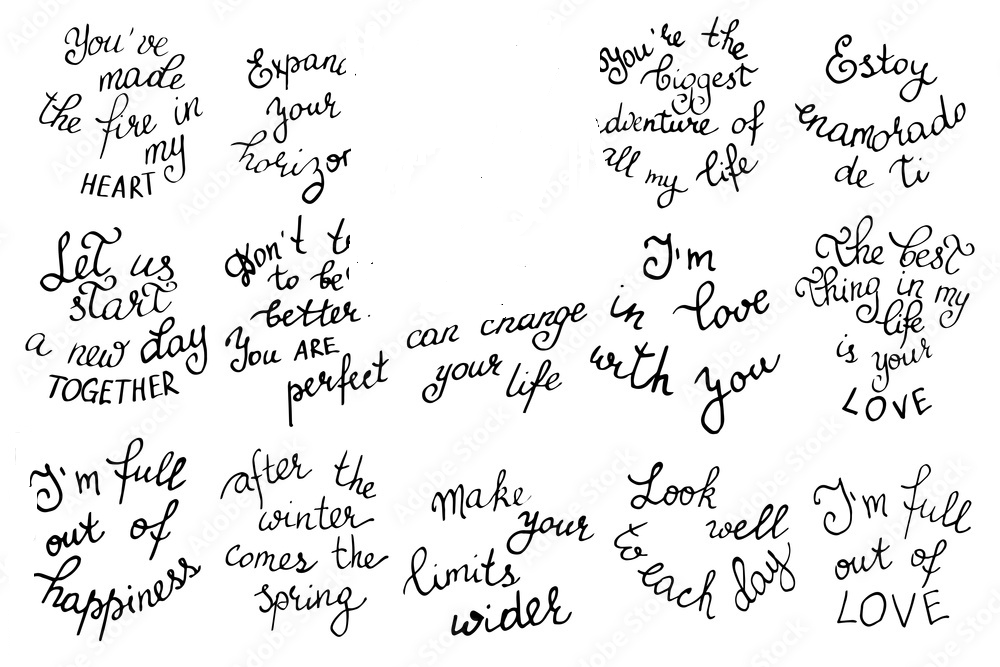 You've
made
the fire in
my
HEART
Expand
your
horizon
You're the
biggest
adventure of
all my life
Estoy
enamorado
de ti
Let us
start
a new day
TOGETHER
Don't t
to be
better.
You ARE
perfect
can change
your life
I'm
in love
with you
The best
thing in my
life
is your
LOVE
I'm full
out of
happiness
after the
winter
comes the
spring
make
your
limits
wider
Look
well
to each day
I'm full
out of
LOVE